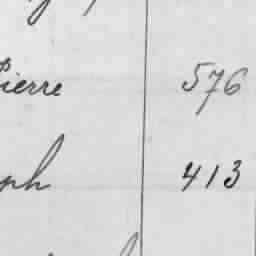 Pierre 576
ph 413